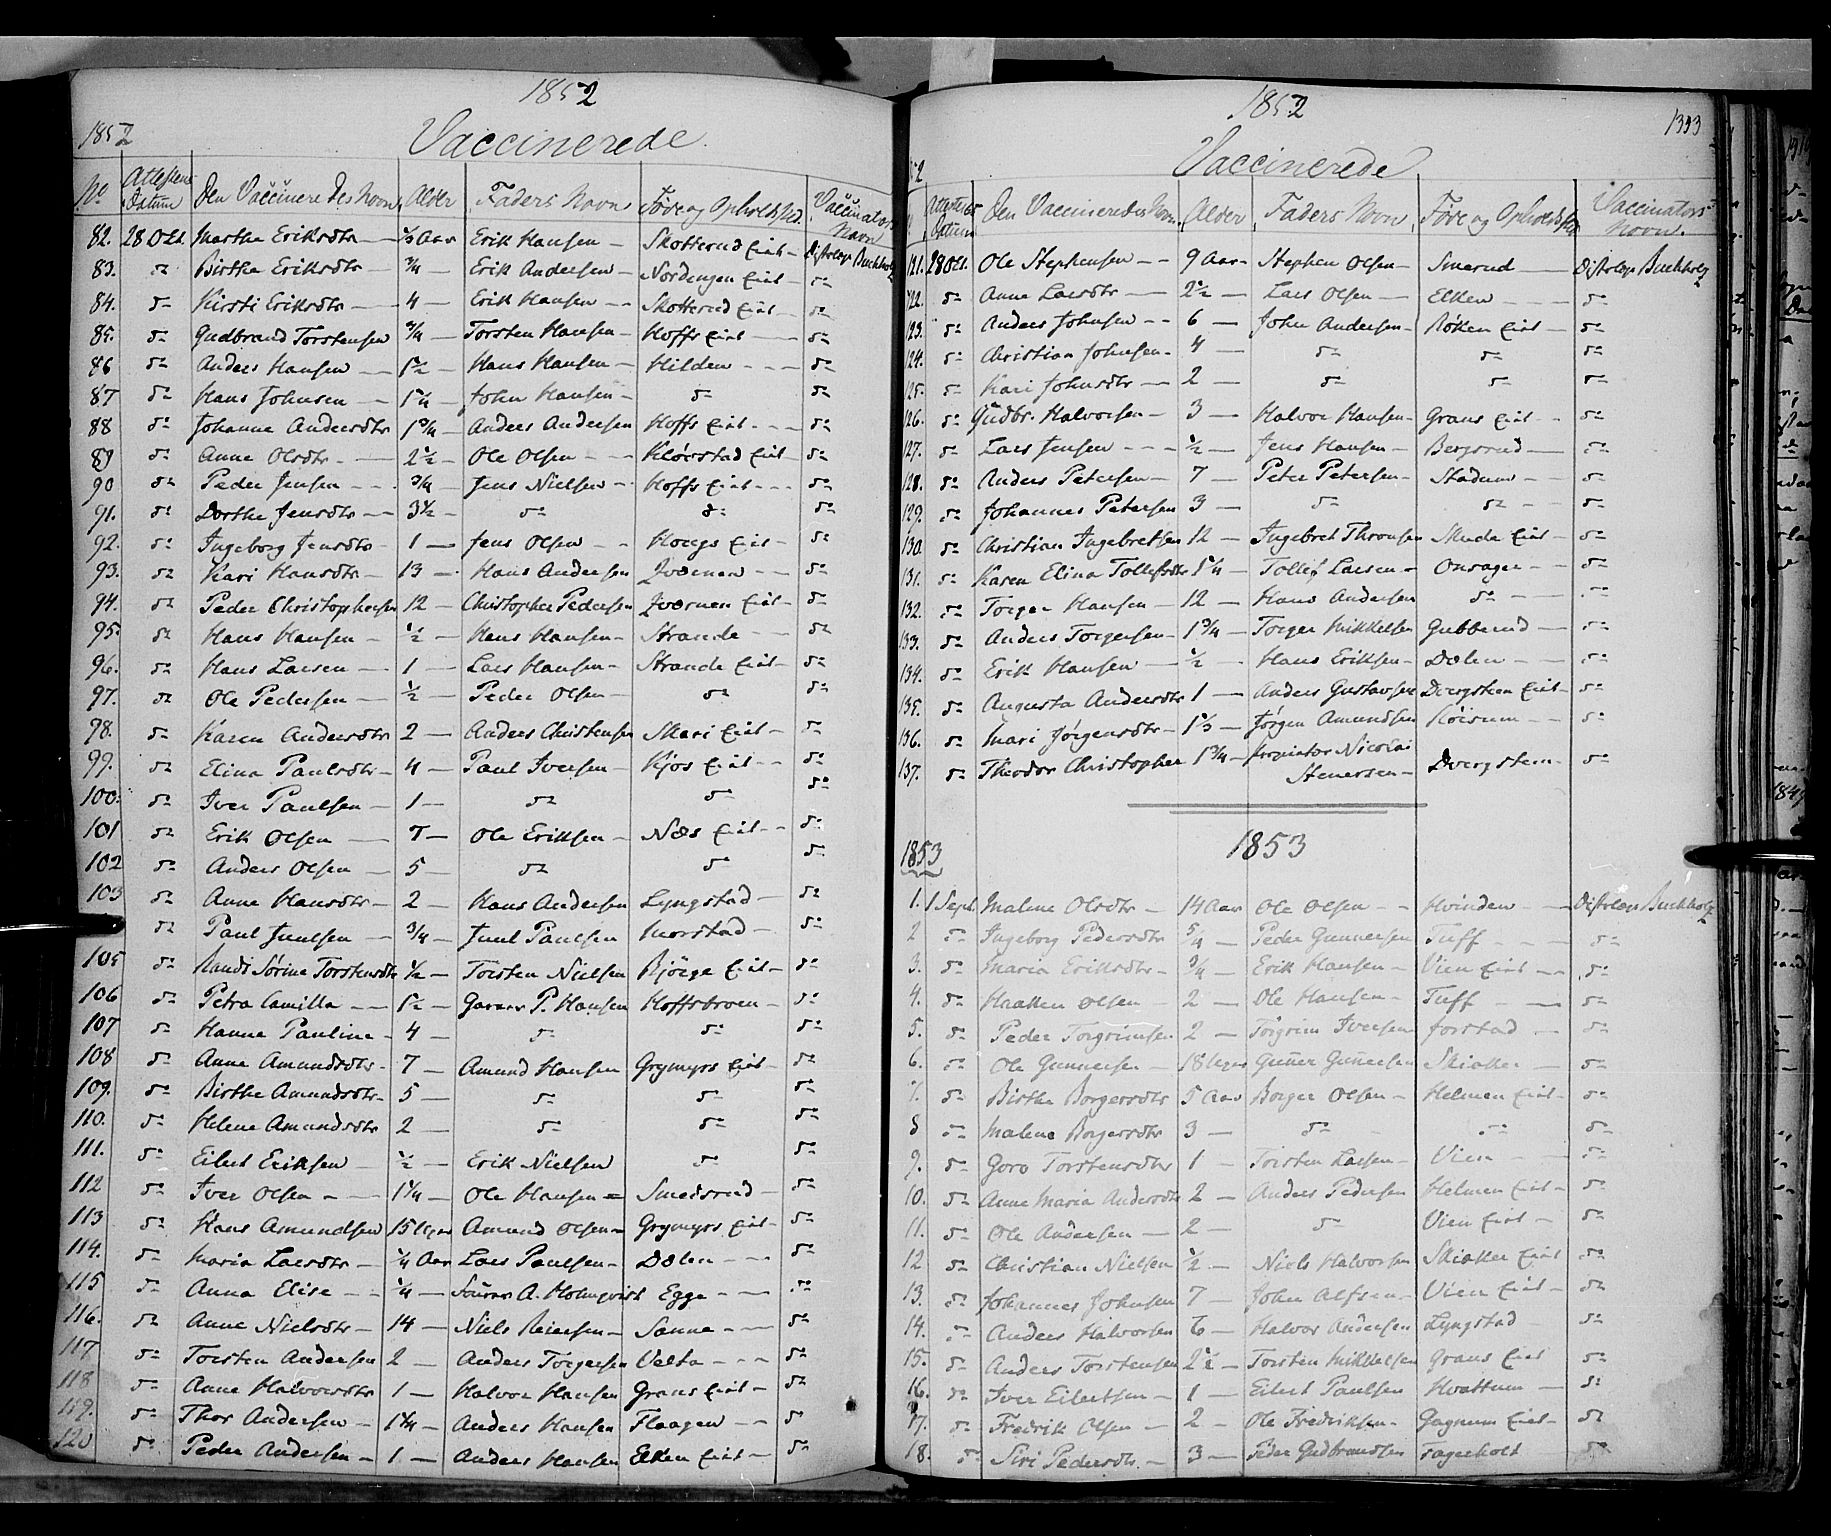 1852
1852
Vaccinerede.
No Attestens Datum Den Vaccineredes Navn Alder Faders Navn Føde og Opholdsted Vaccinators Navn
82. 28 Oct. Marthe Eriksdtr — ⅓ Aar Erik Hansen — Skotterud Eiet — Distrlæge Buchholz
83. do Birthe Eriksdtr — ¾ — Erik Andersen — Nordengen Eiet — do
84. do Kirsti Eriksdtr — 4 — Erik Hansen — Skotterud Eiet — do
85. do Gudbrand Torstensen ¾ — Torsten Hansen — Hoffs Eiet — do
86 do Anders Hansen — 1½ — Hans Hansen — Hilden — do
87 do Hans Johnsen — 1¼ — John Hansen — do do
88 do Johanne Andersdtr 1¾ — Anders Andersen Hoffs Eiet — do
89 do Anne Olsdtr — 2½ — Ole Olsen — Klørstad Eiet — do
90 do Peder Jensen — ¾ — Jens Nielsen — Hoffs Eiet — do
91. do Dorthe Jensdtr — 3½ — do do do
92. do Ingeborg Jensdtr — 1 — Jens Olsen — Hougs Eiet — do
93. do Kari Hansdtr — 13 — Hans Andersen Jværnen — do
94. do Peder Christophersen 12 — Christopher Pedersen Jværnen Eiet — do
95. do Hans Hansen — ½ — Hans Hansen — Strande — do
96. do Hans Larsen — 1 — Lars Hansen — Strande Eiet — do
97. do Ole Pedersen — ½ — Peder Olsen — do do
98. do Karen Andersdtr 2 — Anders Christensen Skari Eiet — do
99. do Elina Paulsdtr — 4 — Paul Iversen — Kjos Eiet — do
100. do Iver Paulsen — 1 — do do do
101 do Erik Olsen — 7 — Ole Eriksen — Næs Eiet — do
102 do Anders Olsen — 5 — do do do
103 do Anne Hansdtr — 2 — Hans Andersen Lyngstad — do
do Paul Juulsen — ¾ — Juul Paulsen Morstad — do
105 do Randi Sørine Torstensdtr ½ — Torsten Nielsen Bjørge Eiet — do
106 do Petra Camilla — 1½ — Garver P. Hansen Hoffsbroen — do
107 do Hanne Pauline — 4 — do do do
108 do Anne Amundsdtr — 7 — Amund Hansen Grymyrs Eiet — do
109. do Birthe Amundsdtr — 5 — do do do
110. do Helene Amundsdtr 2 — do do do
111. do Eilert Eriksen — ½ — Erik Nielsen do do
112 do Iver Olsen — 1¼ — Ole Hansen — Smedsrud — do
113 do Hans Amundsen 15 Uger Amund Olsen — Grymyrs Eiet — do
114. do Maria Larsdtr — ¼ Aar Lars Paulsen — Dølen — do
115 do Anna Elise — ¼ — A. Holmqvist Egge — do
116. do Anne Nielsdtr — 14 — Niels Reiersen — Sønne — do
117 do Torsten Andersen 2 — Anders Torgersen Velta — do
118 do Anne Halvorsdtr 1 — Halvor Hansen Grans Eiet — do
119. do Thor Andersen — 1¼ — Anders Hansen Flaagen — do
120 do Peder Andersen — 1 — Anders Hansen Elken Eiet — do
1852
1353
Vaccinerede
52
Attestens Datum Den Vaccineredes Navn Alder Faders Navn Føde og Opholdsted Vaccinators Navn.
121. 28 Oct. Ole Stephensen — 9 Aar — Stephen Olsen — Smerud — Distrlæge Buchholz
122. do Anne Larsdtr — 2½ — Lars Olsen — Elken — do
123. do Anders Johnsen — 6 — John Andersen — Røken Eiet — do
124. do Christian Johnsen — 4 — do do do
125. do Kari Johnsdtr — 2 — do do do
126. do Gudbr. Halvorsen — 3 — Halvor Hansen — Grans Eiet — do
127. do Lars Jensen — ½ — Jens Hansen — Bergsrud — do
128. do Anders Petersen — 7 — Peter Petersen — Stadum — do
129. do Johannes Petersen 3 — do do do
130. do Christian Ingebretsen 12 — Ingebret Thronsen Skute Eiet — do
131. do Karen Elina Tollefsdtr 1¼ — Tollef Larsen — Onsager — do
132. do Torger Hansen — 12 — Hans Andersen do do
133. do Anders Torgersen — 1¾ — Torger Mikkelsen Gubberud — do
134. do Erik Hansen — ½ — Hans Eriksen — Dølen — do
135. do Augusta Andersdtr 1 — Anders Gustavsen Dvergsten Eiet — do
136. do Mari Jørgensdtr — 1⅓ — Jørgen Amundsen Røisum — do
137. do Theodor Christopher 1¾ — Propriatør Nicolai
Stenersen — Dvergsten — do
1853
1853
1. 1 Sept. Malene Olsdtr — 14 Aar Ole Olsen — Hvinden — Distrlæge Buchholz
2 do Ingeborg Pedersdtr 5/4 — Peder Gunnersen Tuff — do
3. do Maria Eriksdtr — ¾ — Erik Hansen — Vien Eiet — do
4. do Haaken Olsen — 2 — Ole Hansen — Tuff — do
5. do Peder Torgrimsen 2 — Torgrim Iversen Jorstad — do
6. do Ole Gunnersen — 18 Uger Gunner Gunnersen Skiaker — do
7. do Birthe Borgersdtr 5 Aar Borger Olsen — Helmen Eiet — do
8 do Malene Borgersdtr 3 — do do do
9. do Goro Torstensdtr 1 — Torsten Larsen — Vien — do
10. do Anne Maria Andersdtr 2 — Anders Pedersen Helmen Eiet — do
11. do Ole Andersen — 2 — do Vien Eiet — do
12 do Christian Nielsen ½ — Niels Halvorsen Skiaker Eiet do
13. do Johannes Johnsen 7 — John Alfsen — Vien Eiet — do
14. do Anders Halvorsen 6 — Halvor Andersen Lyngstad — do
15. do Anders Torstensen 2½ — Torsten Mikkelsen Grans Eiet do
16. do Iver Eilertsen — 1 — Eilert Paulsen Hvattum — do
17. do Fredrik Olsen — 2 — Ole Fredriksen — Gagnum Eiet — do
18. do Siri Pedersdtr. — 3 — Peder Gudbrandsen Fagerholt do